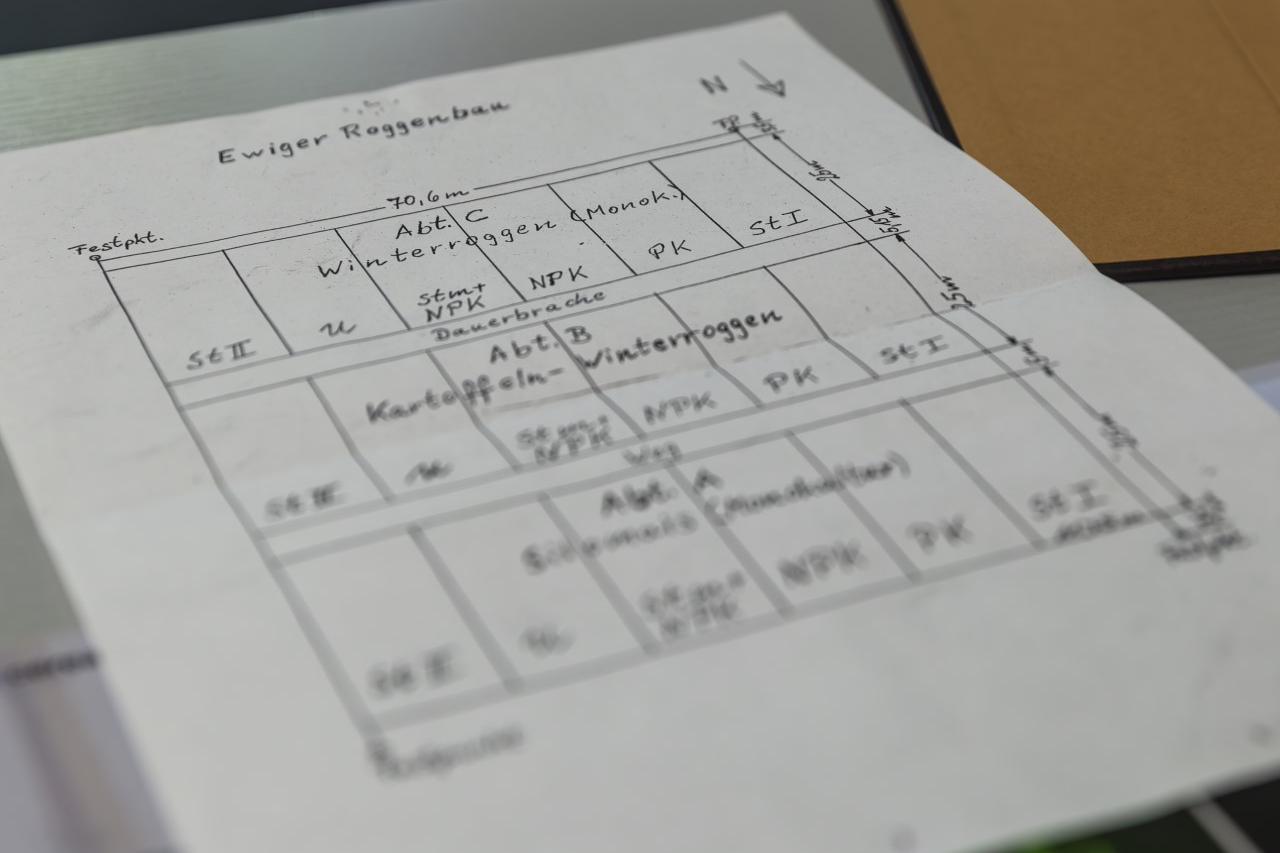 N
Ewiger Roggenbau
70,6 m
Festpkt.
Abt. C
Winterroggen (Monok.)
St II
U
Stm+
NPK
NPK
PK
St I
Dauerbrache
Abt. B
Kartoffeln- Winterroggen
St II
U
Stm+
NPK
NPK
PK
St I
Weg
Abt. A
Silomais (Monokultur)
St II
U
NPK
PK
St I